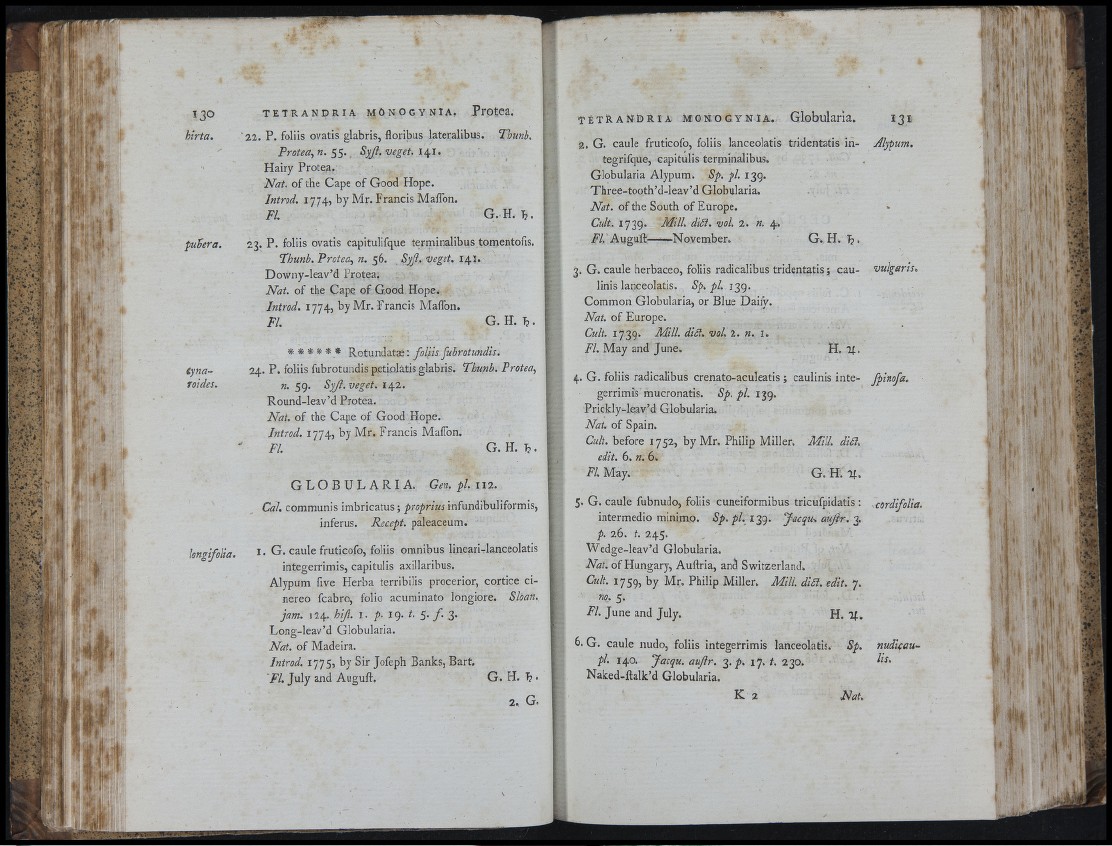 130 TETRANDRIA MONOGYNIA. Protea.
hirta. 22. P. foliis ovatis glabris, floribus lateralibus. Thunb.
Protea, n. 55. Syſt. veget. 141.
Hairy Protea.
Nat. of the Cape of Good Hope.
Introd. 1774, by Mr. Francis Maſſon.
Fl. G. H. ♄.
pubera. 23. P. foliis ovatis capituliſque terminalibus tomentoſis.
Thunb. Protea, n. 56. Syſt. veget. 141.
Downy-leav'd Protea.
Nat. of the Cape of Good Hope.
Introd. 1774, by Mr. Francis Maſſon.
Fl. G. H. ♄.
* * * * * * Rotundatæ: foliis ſubrotundis.
cyna- 24. P. foliis ſubrotundis petiolatis glabris. Thunb. Protea,
roides. n. 59. Syſt. veget. 142.
Round-leav'd Protea.
Nat. of the Cape of Good Hope.
Introd. 1774, by Mr. Francis Maſſon.
Fl. G. H. ♄.
GLOBULARIA. Gen. pl. 112.
Cal. communis imbricatus; proprius infundibuliformis,
inferus. Recept. paleaceum.
longifolia. 1. G. caule fruticoſo, foliis omnibus lineari-lanceolatis
integerrimis, capitulis axillaribus.
Alypum ſive Herba terribilis procerior, cortice ci-
nereo ſcabro, folio acuminato longiore. Sloan.
jam. 124. hiſt. 1. p. 19. t. 5. f. 3.
Long-leav'd Globularia.
Nat. of Madeira.
Introd. 1775, by Sir Joſeph Banks, Bart.
Fl. July and Auguſt. G. H. ♄.
2. G.
TETRANDRIA MONOGYNIA. Globularia. 131
2. G. caule fruticoſo, foliis lanceolatis tridentatis in- Alypum.
tegriſque, capitulis terminalibus.
Globularia Alypum. Sp. pl. 139.
Three-tooth'd-leav'd Globularia.
Nat. of the South of Europe.
Cult. 1739. Mill. dict. vol. 2. n. 4.
Fl. Auguſt——November. G. H. ♄.
3. G. caule herbaceo, foliis radicalibus tridentatis; cau- vulgaris.
linis lanceolatis. Sp. pl. 139.
Common Globularia, or Blue Daiſy.
Nat. of Europe.
Cult. 1739. Mill. dict. vol. 2. n. 1.
Fl. May and June. H. ♃.
4. G. foliis radicalibus crenato-aculeatis; caulinis inte- ſpinoſa.
gerrimis mucronatis. Sp. pl. 139.
Prickly-leav'd Globularia.
Nat. of Spain.
Cult. before 1752, by Mr. Philip Miller. Mill. dict.
edit. 6. n. 6.
Fl. May. G. H. ♃.
5. G. caule ſubnudo, foliis cuneiformibus tricuſpidatis: cordifolia.
intermedio minimo. Sp. pl. 139. Jacqu. auſtr. 3.
p. 26. t. 245.
Wedge-leav'd Globularia.
Nat. of Hungary, Auſtria, and Switzerland.
Cult. 1759, by Mr. Philip Miller. Mill. dict. edit. 7.
no. 5.
Fl. June and July. H. ♃.
6. G. caule nudo, foliis integerrimis lanceolatis. Sp. nudicau-
pl. 140. Jacqu. auſtr. 3. p. 17. t. 230. lis.
Naked-ſtalk'd Globularia.
K 2 Nat.